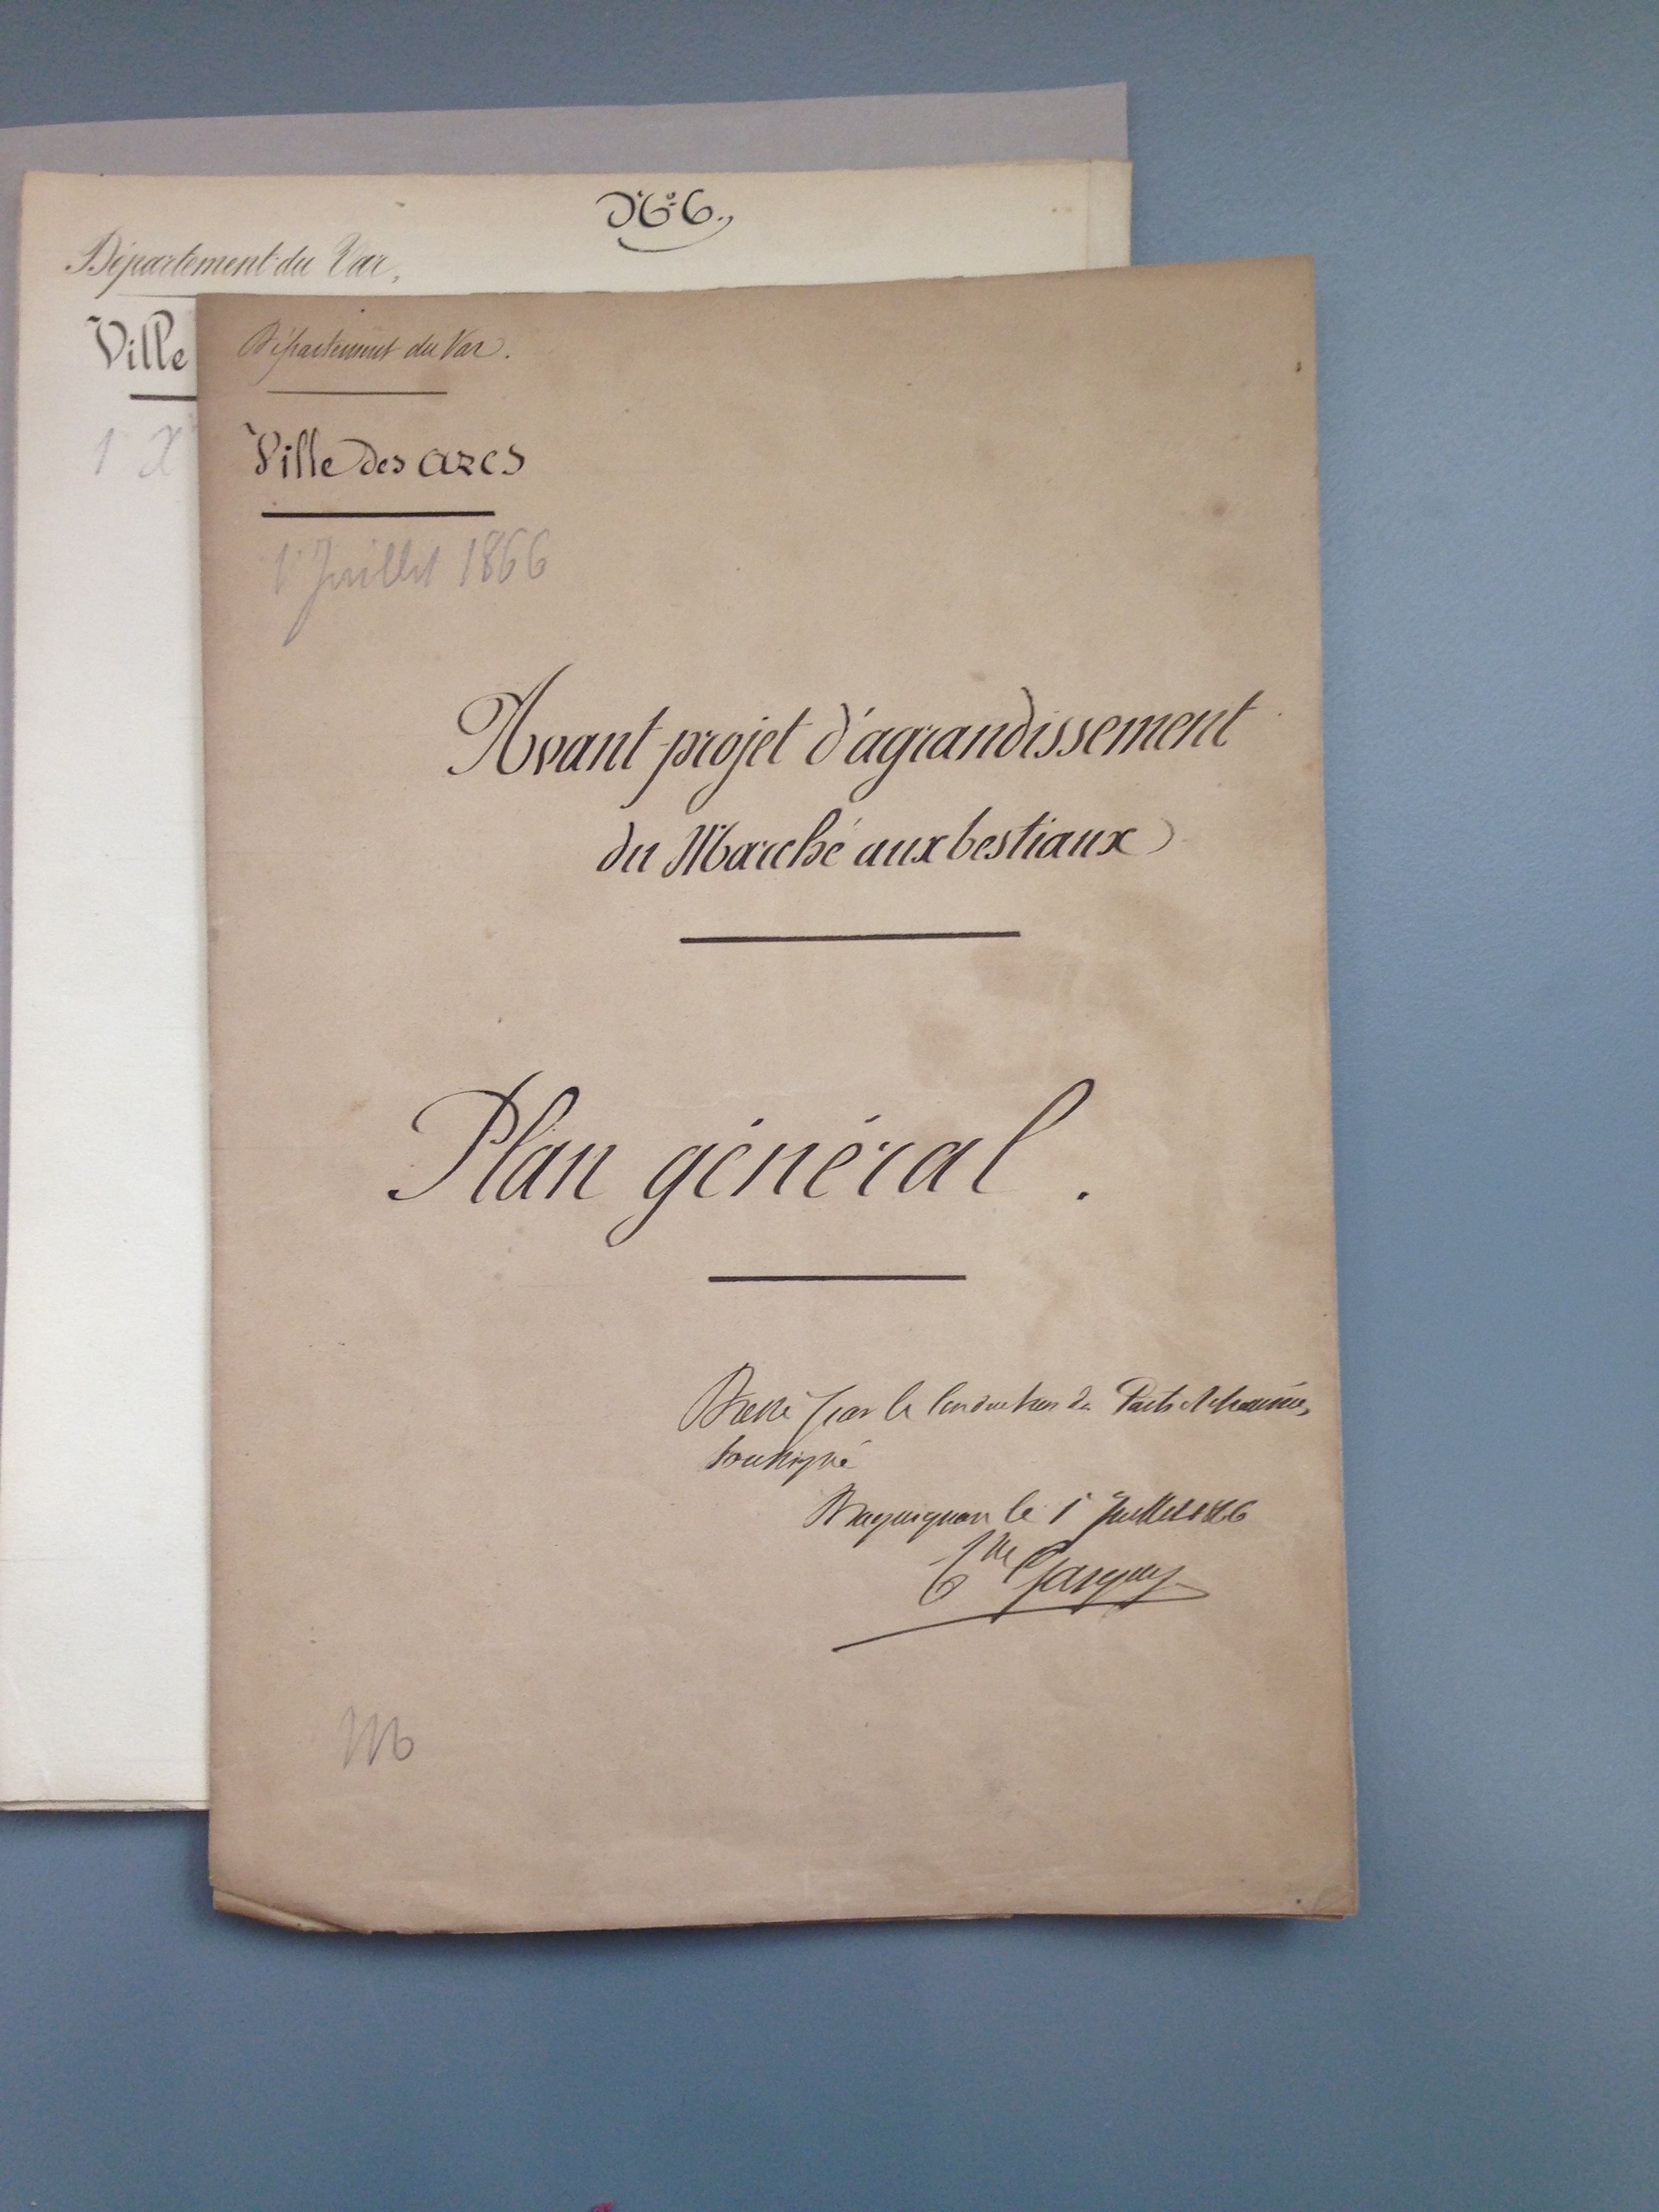 Département du Var,
Ville
1 X
Département du Var.
Ville des arcs
1er Juillet 1866
Avant-projet d'agrandissement
du Marché aux bestiaux
Plan général.
Dressé par le Conducteur des Ponts et chaussées
soussigné
Draguignan le 1er Juillet 1866